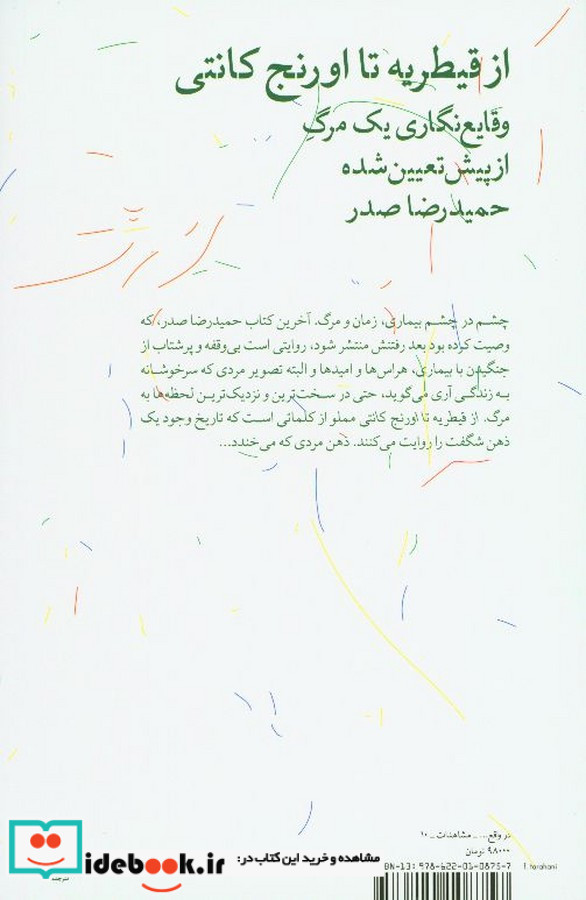 از قیطریه تا اورنج کانتی
وقایع‌نگاری یک مرگِ
از پیش تعیین‌شده
حمیدرضا صدر
چشم در چشم بیماری، زمان و مرگ. آخرین کتاب حمیدرضا صدر، که
وصیت کرده بود بعد رفتنش منتشر شود، روایتی است بی‌وقفه و پرشتاب از
جنگیدن با بیماری، هراس‌ها و امیدها و البته تصویر مردی که سرخوشانه
به زندگی آری می‌گوید، حتی در سخت‌ترین و نزدیک‌ترین لحظه‌ها به
مرگ. از قیطریه تا اورنج کانتی مملو از کلماتی است که تاریخ وجود یک
ذهن شگفت را روایت می‌کنند. ذهن مردی که می‌خندد...
در واقع... _ مشاهدات _ ۱۰
۹۸۰۰۰ تومان
BN-13: 978-622-01-0875-7
f. farahani
مشاهده و خرید این کتاب در:
idebook.ir